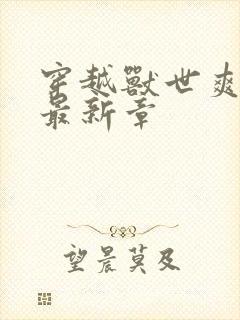 穿越獸世爽
最新章
望晨莫及